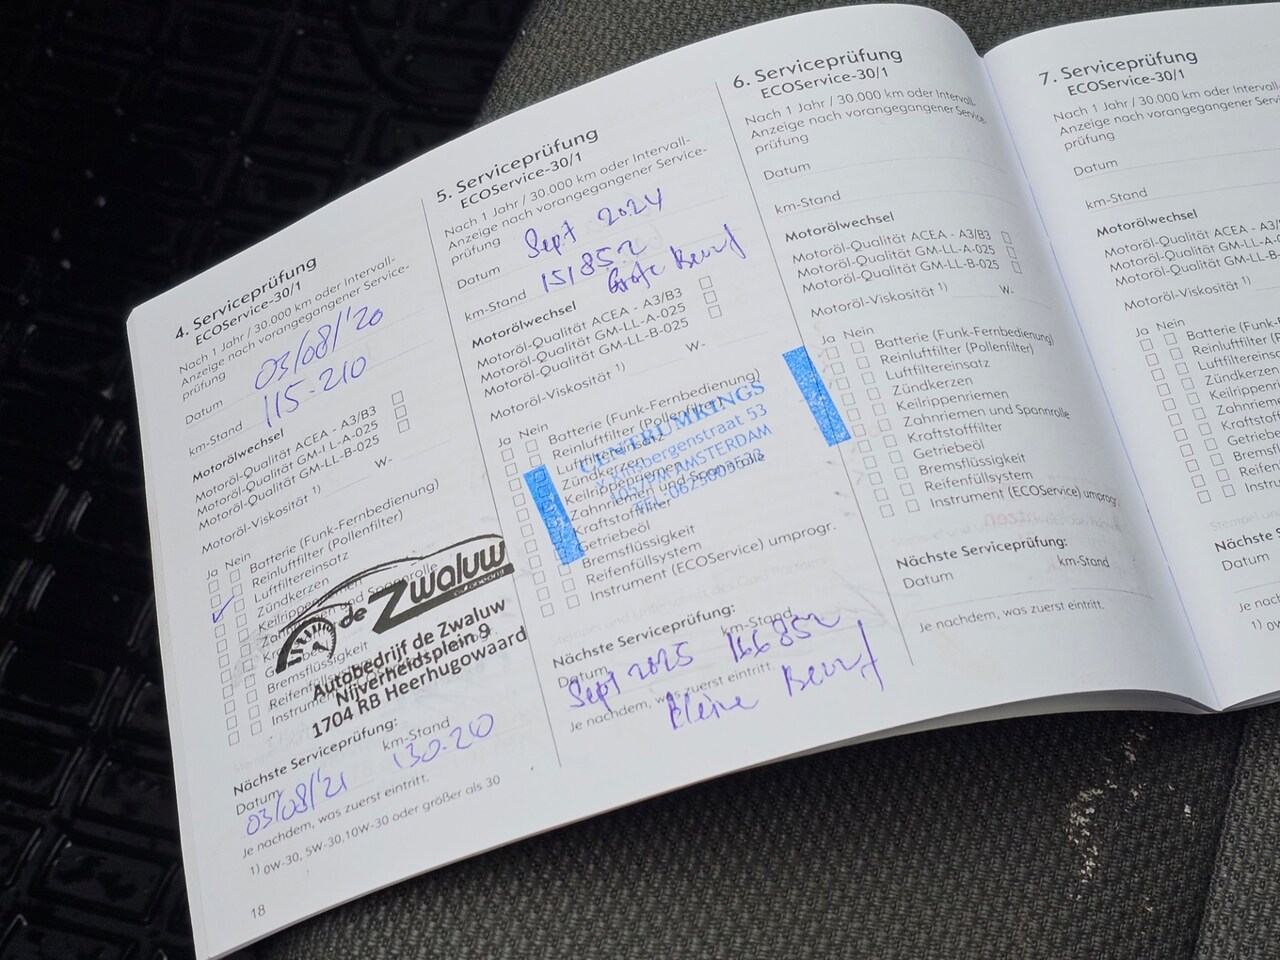 4. Serviceprüfung
ECOService-30/1
Nach 1 Jahr / 30.000 km oder Intervall-
Anzeige nach vorangegangener Service-
prüfung
Datum 03/08/'20
km-Stand 115-210
Motorölwechsel
Motoröl-Qualität ACEA - A3/B3
Motoröl-Qualität GM-LL-A-025
Motoröl-Qualität GM-LL-B-025
Motoröl-Viskosität 1) W-
Ja Nein
Batterie (Funk-Fernbedienung)
Reinluftfilter (Pollenfilter)
Luftfiltereinsatz
Zündkerzen
Bremsflüssigkeit
de Zwaluw
Autobedrijf de Zwaluw
Nijverheidsplein 9
1704 RB Heerhugowaard
Nächste Serviceprüfung:
Datum km-Stand
03/08/'21 130-210
Je nachdem, was zuerst eintritt.
1) 0W-30, 5W-30,10W-30 oder größer als 30
18
5. Serviceprüfung
ECOService-30/1
Nach 1 Jahr / 30.000 km oder Intervall-
Anzeige nach vorangegangener Service-
prüfung
Datum Sept 2024
km-Stand 151852
Motorölwechsel
Motoröl-Qualität ACEA - A3/B3
Motoröl-Qualität GM-LL-A-025
Motoröl-Qualität GM-LL-B-025
Motoröl-Viskosität 1) W-
Ja Nein
Batterie (Funk-Fernbedienung)
Reinluftfilter (Pollenfilter)
Zündkerzen
Keilrippenriemen
Zahnriemen und Spannrolle
Kraftstofffilter
Getriebeöl
Bremsflüssigkeit
Reifenfüllsystem
Instrument (ECOService) umprogr.
CENTRUMKINGS
AMSTERDAM
Nächste Serviceprüfung:
Datum km-Stand
Sept 2025 166852
Je nachdem, was zuerst eintritt.
6. Serviceprüfung
ECOService-30/1
Nach 1 Jahr / 30.000 km oder Intervall-
Anzeige nach vorangegangener Service-
prüfung
Datum
km-Stand
Motorölwechsel
Motoröl-Qualität ACEA - A3/B3
Motoröl-Qualität GM-LL-A-025
Motoröl-Qualität GM-LL-B-025
Motoröl-Viskosität 1) W-
Ja Nein
Batterie (Funk-Fernbedienung)
Reinluftfilter (Pollenfilter)
Luftfiltereinsatz
Zündkerzen
Keilrippenriemen
Zahnriemen und Spannrolle
Kraftstofffilter
Getriebeöl
Bremsflüssigkeit
Reifenfüllsystem
Instrument (ECOService) umprogr.
Nächste Serviceprüfung:
Datum km-Stand
Je nachdem, was zuerst eintritt.
7. Serviceprüfung
ECOService-30/1
Nach 1 Jahr / 30.000 km oder
Anzeige nach vorangegangener
prüfung
Datum
km-Stand
Motorölwechsel
Motoröl-Qualität ACEA - A3
Motoröl-Qualität GM-LL-A
Motoröl-Qualität GM-LL-B
Motoröl-Viskosität 1)
Ja Nein
Batterie (Funk
Reinluftfilter
Luftfiltereins
Zündkerzen
Keilrippen
Zahnrieme
Kraftsto
Getriebe
Bremsfl
Reifenf
Instru
Nächste S
Datum
Je nac
1) 0W